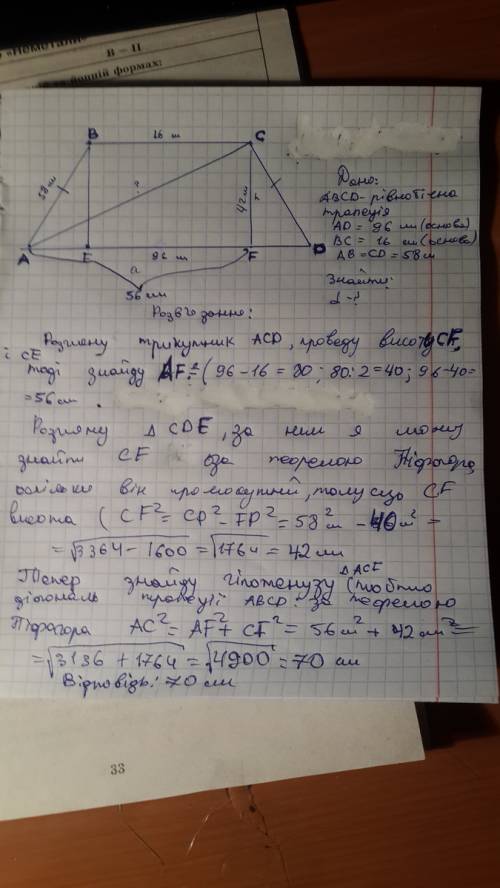 Неметали
В – ІІ
йонній формах:
B 16 см C
58 см
?
42 см
h
A E 96 см F D
a
56 см
Дано:
ABCD - рівнобічна
трапеція
AD = 96 см (основа)
BC = 16 см (основа)
AB = CD = 58 см
Знайти:
d - ?
Розв'язання:
Розгляну трикутник ACD, проведу висоту CF,
і CE
тоді знайду AF = (96 - 16 = 80; 80 : 2 = 40; 96 - 40 =
= 56 см.
Розгляну △ CDE, за ним я можу
знайти CE за теоремою Піфагора,
оскільки він прямокутний, тому що CF
висота ( CF² = CD² - FD² = 58² см - 40 см² =
= √3364 - 1600 = √1764 = 42 см
Тепер знайду гіпотенузу △ACF (тобто
діагональ трапеції ABCD. за теоремою
Піфагора AC² = AF² + CF² = 56 см² + 42 см² =
= √3136 + 1764 = √4900 = 70 см
Відповідь: 70 см
33